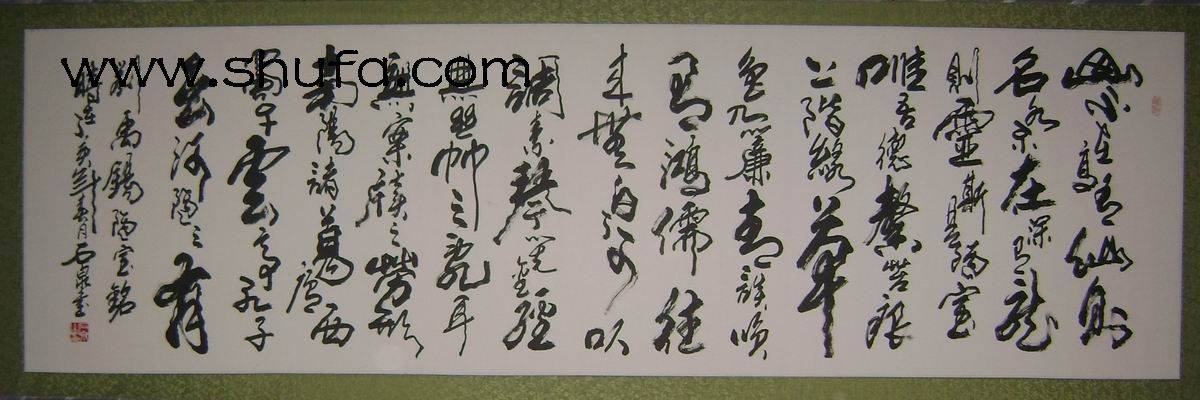 www.shufa.com
山不在高有仙則
名水不在深有龍
則靈斯是陋室
唯吾德馨苔痕
上階綠草
色入簾青談笑
有鴻儒往
來無白丁可以
調素琴閱金經
無絲竹之亂耳
無案牘之勞形
南陽諸葛廬西
蜀子雲亭孔子
云何陋之有
劉禹錫陋室銘
時在年春月石泉書